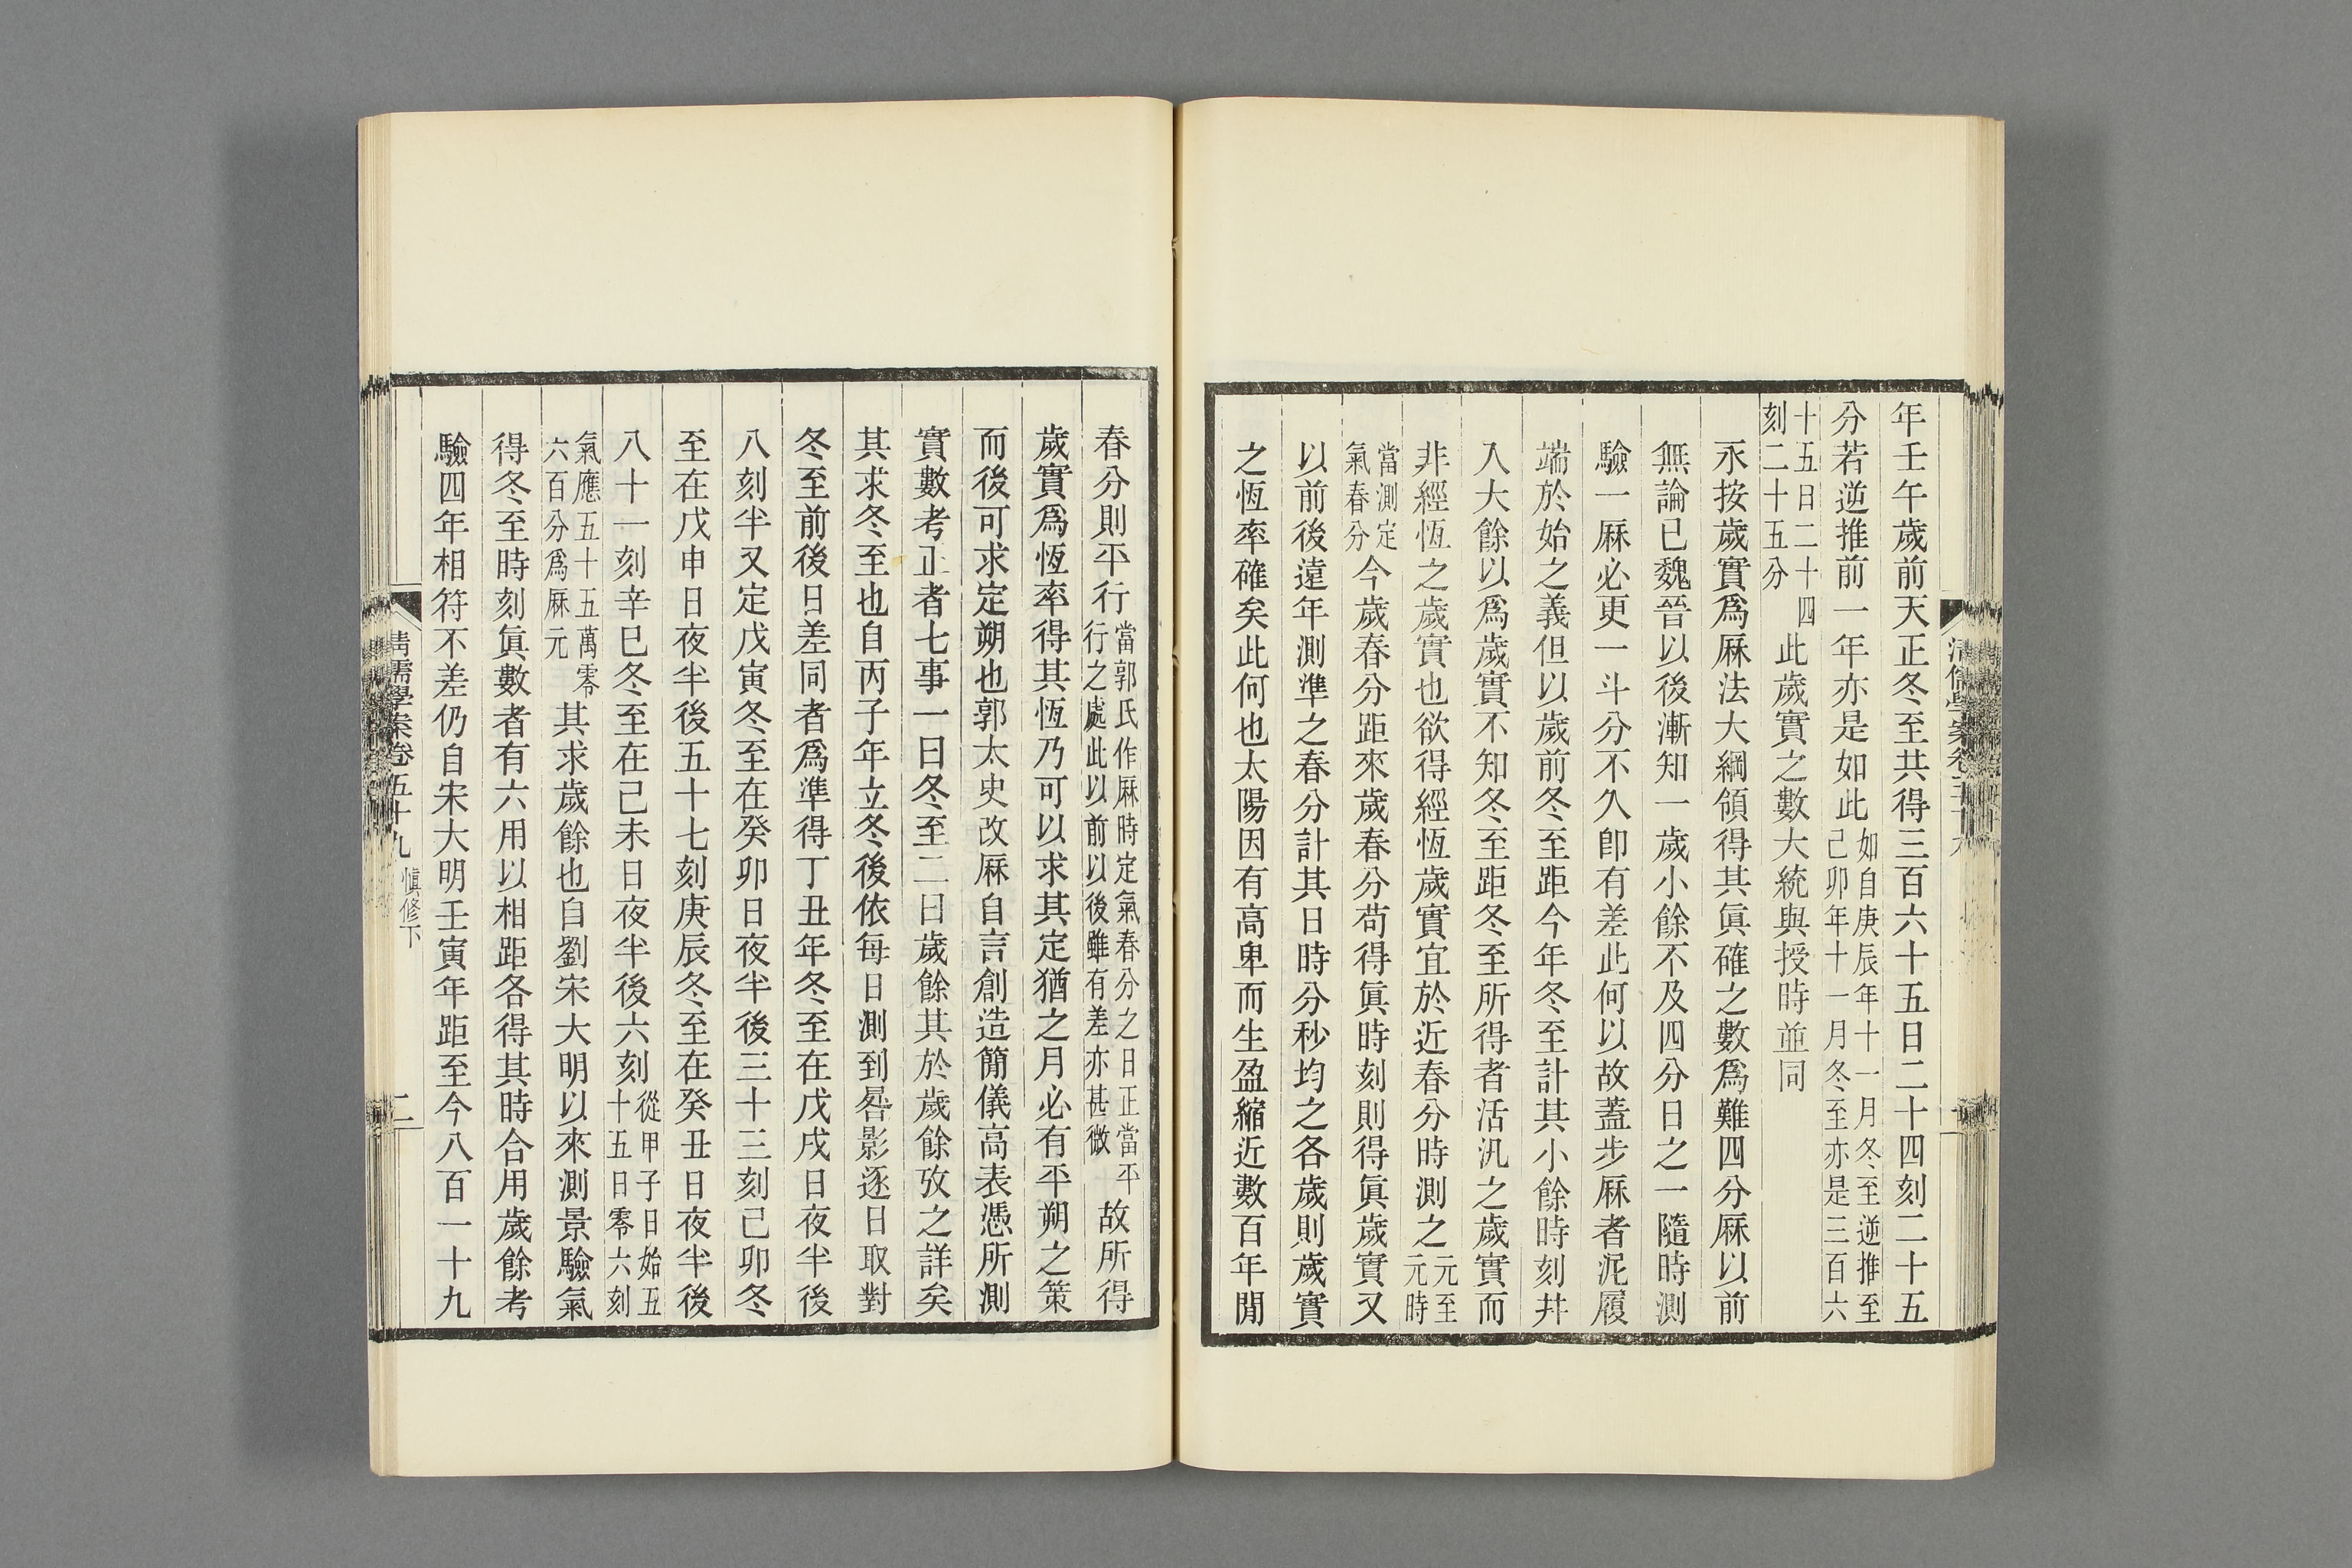 年壬午歲前天正冬至共得三百六十五日二十四刻二十五
分若逆推前一年亦是如此如自庚辰年十一月冬至逆推至己卯年十一月冬至亦是三百六
十五日二十四刻二十五分此歲實之數大統與授時並同
永按歲實爲厤法大綱領得其眞確之數爲難四分厤以前
無論已魏晉以後漸知一歲小餘不及四分日之一隨時測
驗一厤必更一斗分不久卽有差此何以故蓋步厤者泥履
端於始之義但以歲前冬至距今年冬至計其小餘時刻幷
入大餘以爲歲實不知冬至距冬至所得者活汎之歲實而
非經恆之歲實也欲得經恆歲實宜於近春分時測之元至元時
當測定氣春分今歲春分距來歲春分苟得眞時刻則得眞歲實又
以前後遠年測準之春分計其日時分秒均之各歲則歲實
之恆率確矣此何也太陽因有高卑而生盈縮近數百年閒
春分則平行當郭氏作厤時定氣春分之日正當平行之處此以前以後雖有差亦甚微故所得
歲實爲恆率得其恆乃可以求其定猶之月必有平朔之策
而後可求定朔也郭太史改厤自言創造簡儀高表憑所測
實數考正者七事一曰冬至二曰歲餘其於歲餘攷之詳矣
其求冬至也自丙子年立冬後依每日測到晷影逐日取對
冬至前後日差同者爲準得丁丑年冬至在戊戌日夜半後
八刻半又定戊寅冬至在癸卯日夜半後三十三刻己卯冬
至在戊申日夜半後五十七刻庚辰冬至在癸丑日夜半後
八十一刻辛巳冬至在己未日夜半後六刻從甲子日始五十五日零六刻
氣應五十五萬零六百分爲厤元其求歲餘也自劉宋大明以來測景驗氣
得冬至時刻眞數者有六用以相距各得其時合用歲餘考
驗四年相符不差仍自宋大明壬寅年距至今八百一十九
清儒學案卷五十九 愼修下 二